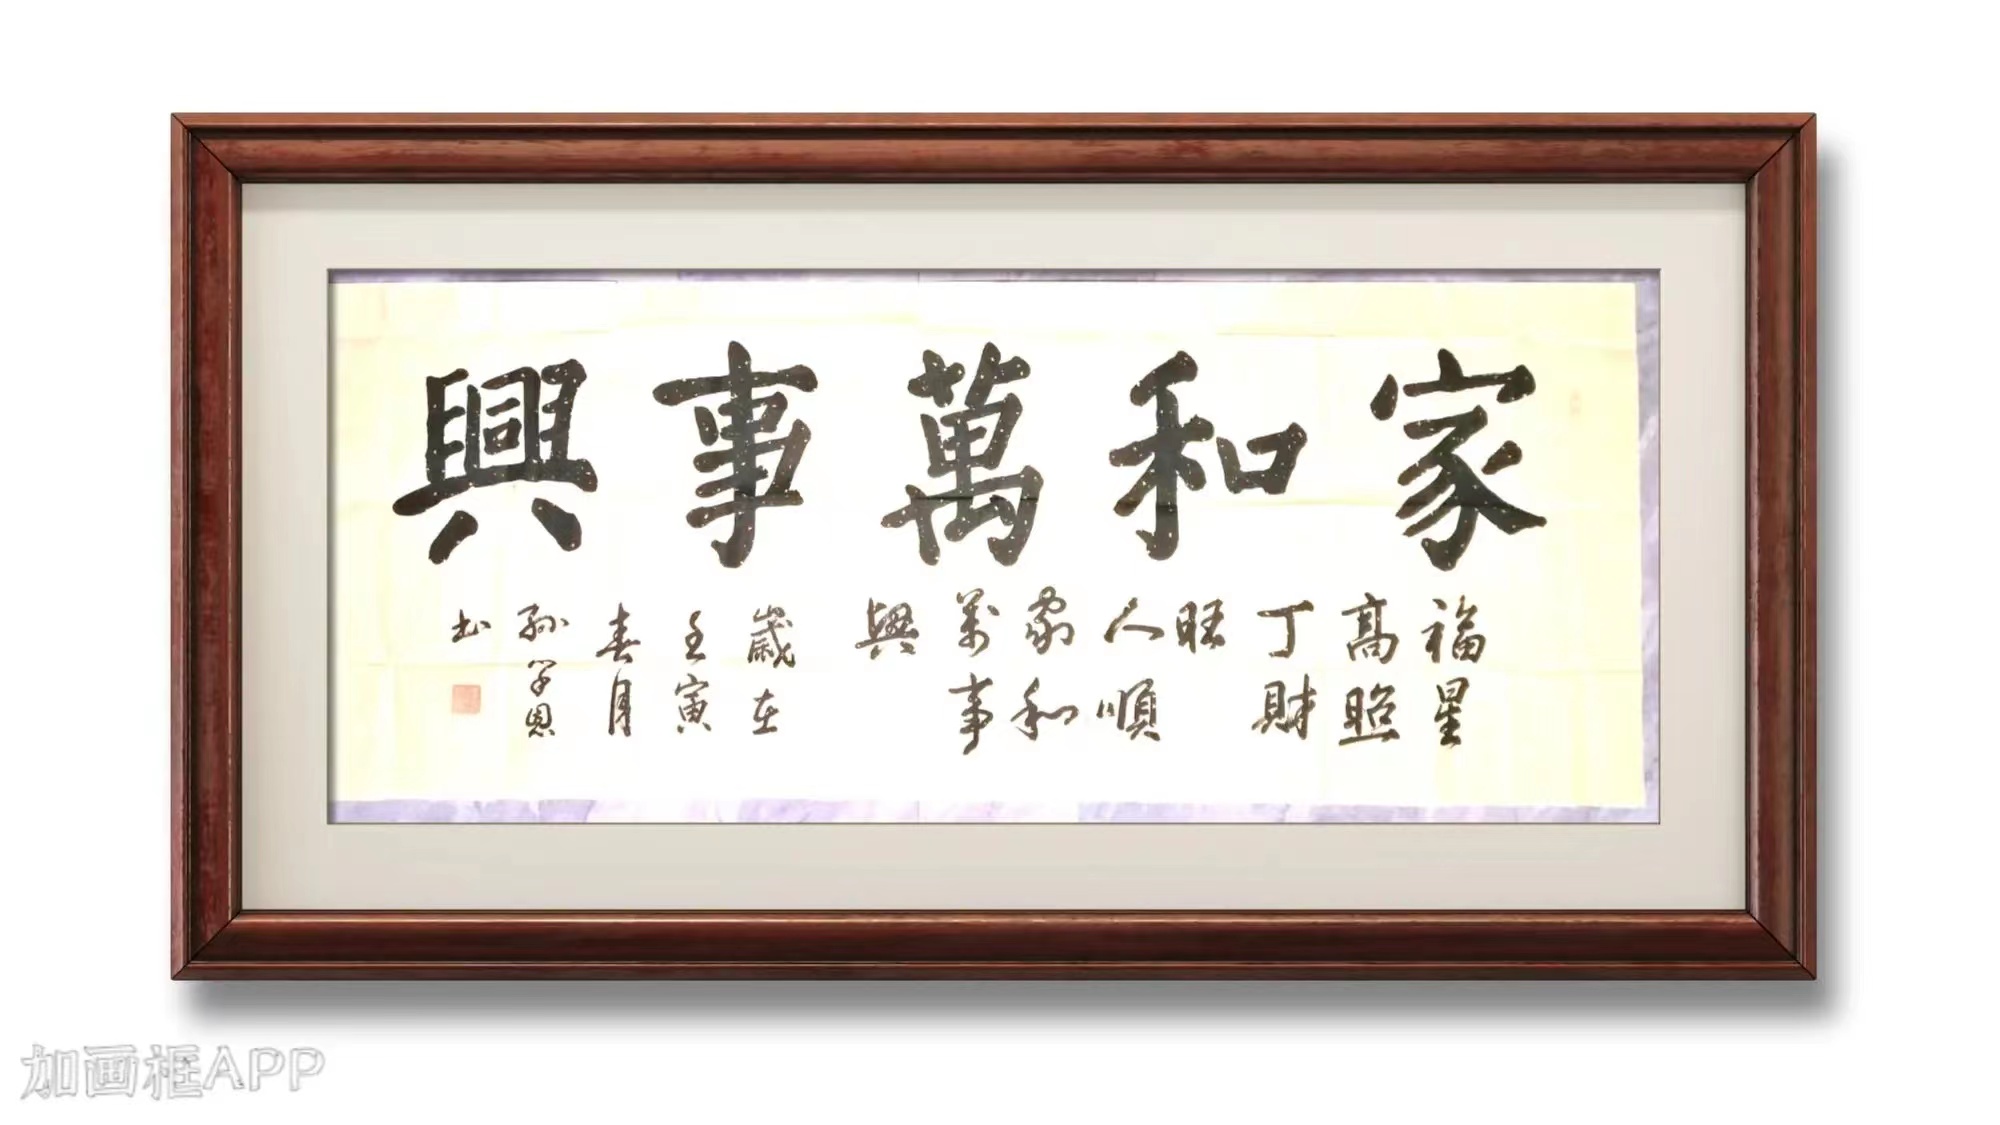 家和萬事興
福星
高照
丁財
旺
人順
家和
萬事
興
歲在
壬寅
春月
孙学恩
书
加画框APP